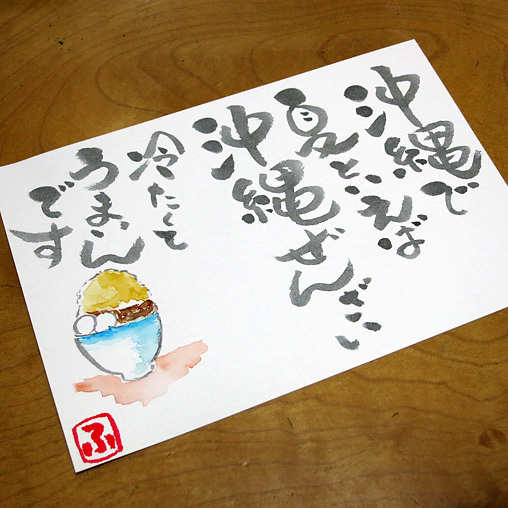 沖縄で
夏といえば
沖縄ぜんざい
冷たくて
うまいん
です
ふ